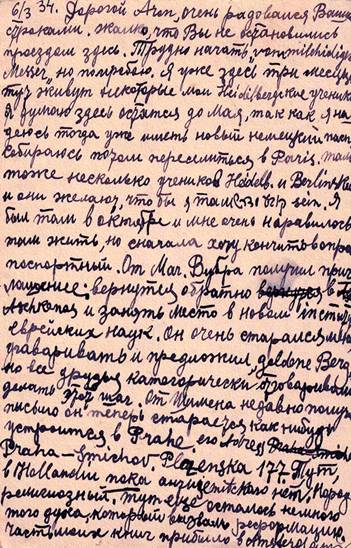 6/3 34. Дорогой Арп, очень радовался Вашим
строками. Жалко, что Вы не остановились
проездом здесь. Трудно начать "vom milchidigen
Messer", но попробую. Я уже здесь три месяца
тут живут некоторые мои Heidelbergские ученики
Я думаю здесь остатся до Мая, так как я на
деюсь тогда уже иметь новый немецкий пасп
собираюсь потом переселиться в Paris. там
тоже несколько учеников Heidelb. и Berlinские
и они желают, что бы я там
sein. Я
был там в октябре и мне очень наравилось
там жить, но сначала хочу кончить вопрос
паспортный. От Маг. Вубра получил приг
лашение: вернутся обратно в
Aschkenas и занять место в новом институте
еврейских наук. Он очень старался меня
уговаривать и предложил „goldene Berge"
но все друзья категорически отговаривали
делать этот шаг. От Шимена недавно получил
письмо он теперь старается как нибудь
устроится в Prahe его Adress
Praha-Smichov. Plzenska 177. Тут
в Hollandии пока антисемитского нет. Народ
религиозный. Тут еще осталось немного
того духа, который вызвал реформацию.
часть моих книг прибыло в